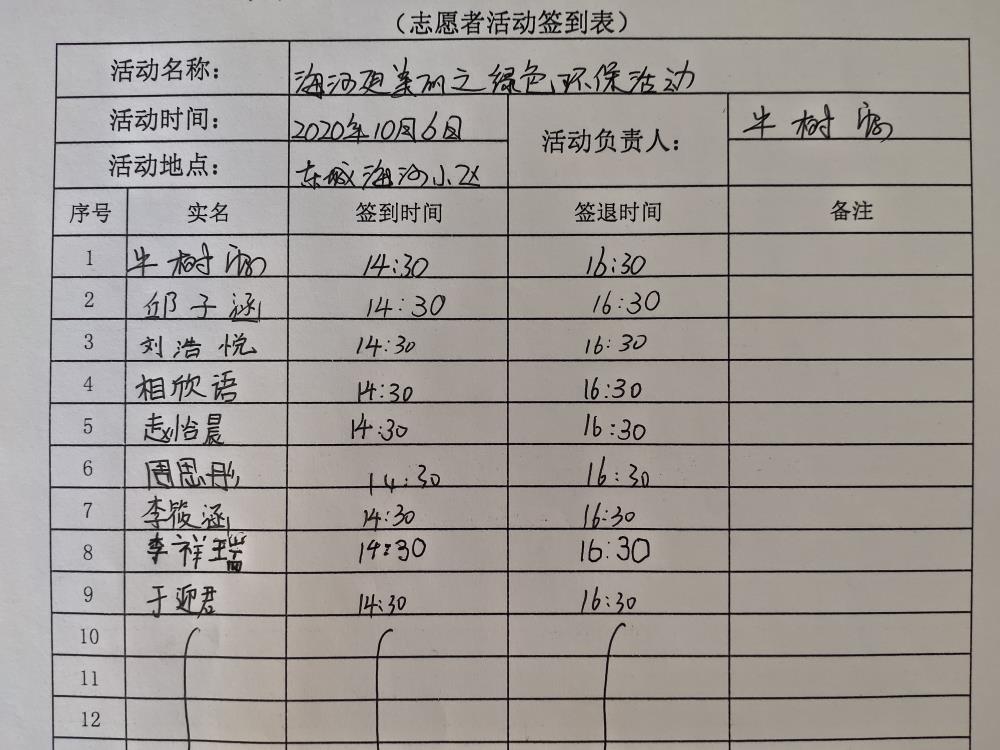 （志愿者活动签到表）
活动名称： 海河更美丽之绿色环保活动
活动时间： 2020年10月6日 活动负责人： 牛树
活动地点： 东城海河小区
序号 实名 签到时间 签退时间 备注
1 牛树 14:30 16:30
2 邱子涵 14:30 16:30
3 刘浩悦 14:30 16:30
4 相欣语 14:30 16:30
5 赵怡晨 14:30 16:30
6 周思彤 14:30 16:30
7 李筱涵 14:30 16:30
8 李祥瑞 14:30 16:30
9 于迎君 14:30 16:30
10
11
12